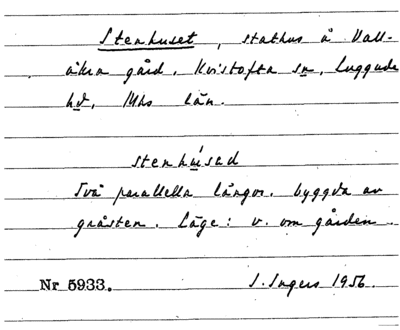 Stenhuset, stathus å Vall-
åkra gård, Kvistofta sn, Luggude
hd, Mhs län.
stenhúsad
Två parallella längor, byggda av
gråsten. Läge: v. om gården.
Nr 5933. I. Ingers 1956.